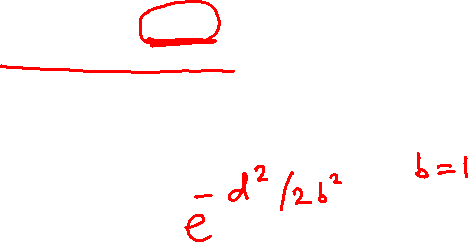 e^{-d²/2b²} b=1